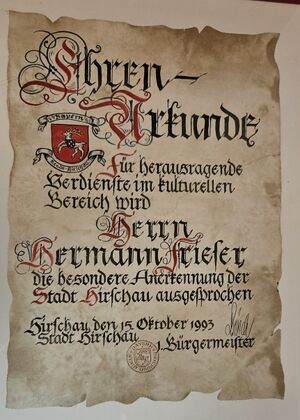 Ehren-
Urkunde
Bayern
Für herausragende
Verdienste im kulturellen
Bereich wird
Herrn
Hermann Frieser
die besondere Anerkennung der
Stadt Hirschau ausgesprochen
Hirschau, den 15. Oktober 1993
Stadt Hirschau
1. Bürgermeister